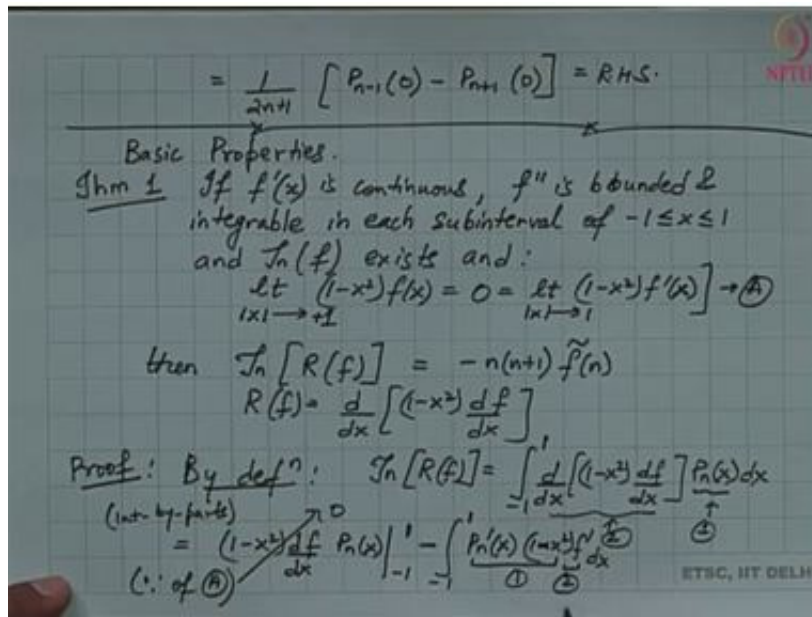 = 1/(2n+1) [ P_{n-1}(0) - P_{n+1}(0) ] = RHS.
NPTEL
Basic Properties.
Thm 1 If f'(x) is continuous, f'' is bounded &
integrable in each subinterval of -1 ≤ x ≤ 1
and 𝒯n(f) exists and:
lt_{|x|→+1} (1-x²)f(x) = 0 = lt_{|x|→1} (1-x²)f'(x) ] → Ⓐ
then 𝒯n[R(f)] = -n(n+1) f̃(n)
R(f) = d/dx [(1-x²) df/dx]
Proof: By defⁿ: 𝒯n[R(f)] = ∫_{-1}^{1} d/dx [(1-x²) df/dx] Pn(x) dx
(int-by-parts) 0 ② ①
= (1-x²) df/dx Pn(x) |_{-1}^{1} - ∫_{-1}^{1} Pn'(x) (1-x²) f' dx
(∵ of Ⓐ) ① ②
ETSC, IIT DELH